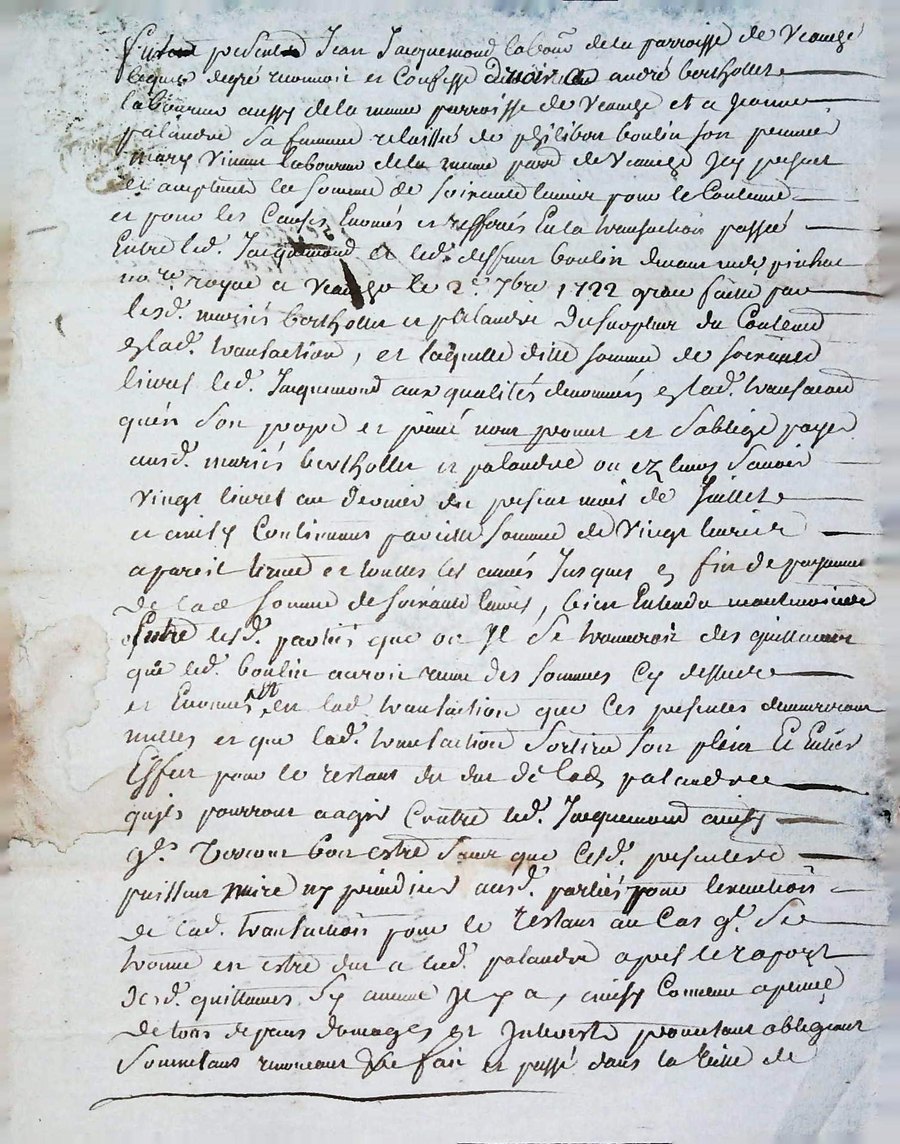 présent Jean Jacquemond labour de la parroisse de Veauge
lequel de gré reconnoit et confesse devoir a andré bertholet
laboureur aussy de la meme parroisse de Veauge et a Jeanne
palandre sa femme relaissée de philibon boulin son premier
mary vivant laboureur de la meme parr de Veauge Icy present
et acceptant la somme de soixante livres pour le Contenu
et pour les Causes Enoncés et refferés En la transaction passée
Entre led. Jacquemond et led. deffunt boulin devant
no.re royal a Veauge le 2e. 7bre 1722 faitte par
lesd. mariés bertholet et palandre du Contenu
lad. transaction, et laquelle ditte somme de soixante
livres led. Jacquemond aux qualités denommés lad. transaction
qu'en son propre et privé nom promet et s'oblige payer
ausd. mariés bertholet et palandre ou ez leurs savoir
vingt livres au dernier du present mois de Juillet
et ainsy Continuer pareille somme de Vingt livres
a pareil terme et touttes les années Jusques en fin de payement
de lad somme de soixante livres, bien Entendu
Entre lesd. parties que ou Il se trouveroit des quittances
que led. boulin auroit des sommes Cy dessus
et Enoncés en lad. transaction que Ces presentes demeureront
nulles et que lad. transaction sortira son plein Et Entier
Effet pour le restant du dut de lad palandre
qu'ils pourront agir Contre led. Jacquemond ainsy
bon estre sans que Cesd. presentes
puissent nuire ny prejudicier ausd. parties pour l'execution
de lad. transaction pour le restant au Cas se
trouve en estre dut a lad. palandre apres le raport
desd. quittances sy aucune Il y a, ainsy Comme a peine
de tous depans domages et Interests promettant obligeant
soumettant renonceant fait et passé dans la de